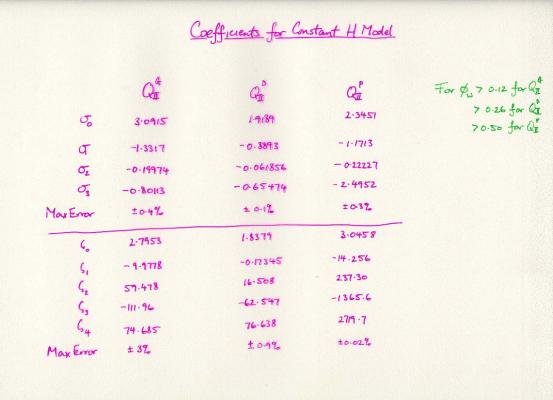 Coefficients for Constant H Model
Q_II^G Q_II^D Q_II^P
For φ_w > 0.12 for Q_II^G
> 0.26 for Q_II^D
> 0.50 for Q_II^P
σ₀ 3.0915 1.9189 2.3451
σ -1.3317 -0.3893 -1.1713
σ₂ -0.19974 -0.061856 -0.22227
σ₃ -0.80113 -0.65474 -2.4952
Max Error ±0.4% ±0.1% ±0.3%
ς₀ 2.7953 1.8379 3.0458
ς₁ -9.9778 -0.17345 -14.256
ς₂ 59.478 16.508 237.30
ς₃ -111.96 -62.547 -1365.6
ς₄ 74.685 76.638 2719.7
Max Error ±3% ±0.9% ±0.02%